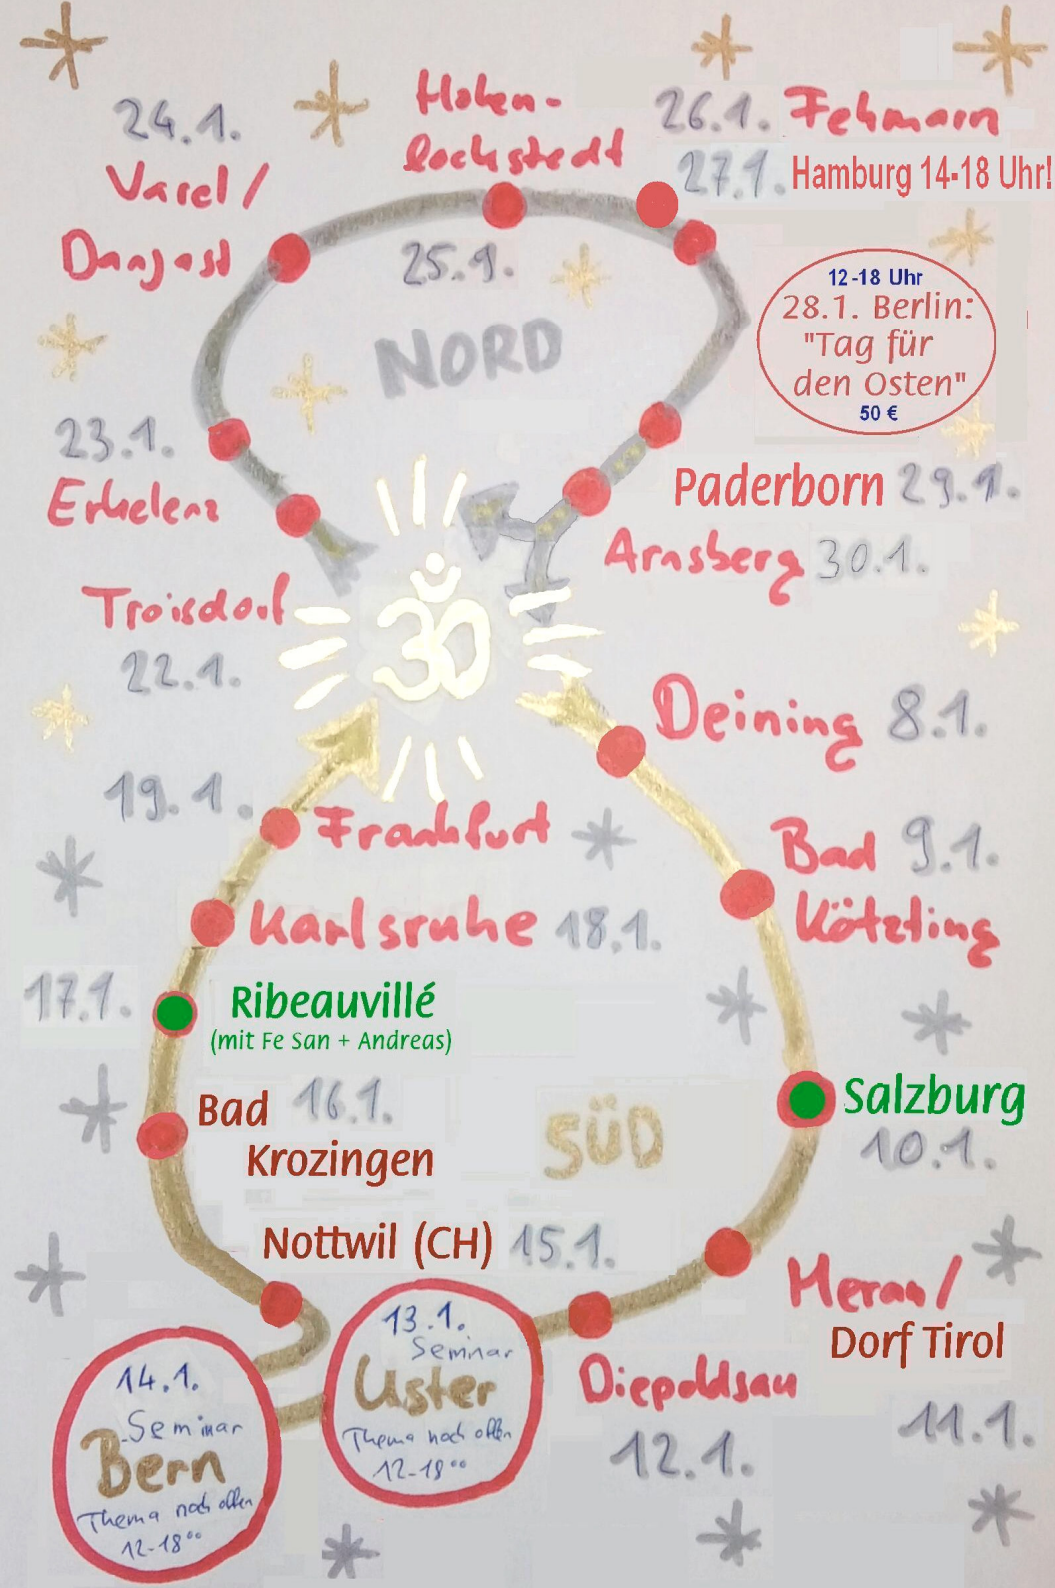 24.1.
Varel /
Dangast
Hohen-
lockstedt
25.1.
26.1. Fehmarn
27.1. Hamburg 14-18 Uhr!
12-18 Uhr
28.1. Berlin:
"Tag für
den Osten"
50 €
NORD
23.1.
Erkelenz
Paderborn 29.1.
Arnsberg 30.1.
Troisdorf
22.1.
ॐ
Deining 8.1.
19.1.
Frankfurt
Bad 9.1.
Kötzting
Karlsruhe 18.1.
17.1.
Ribeauvillé
(mit Fe San + Andreas)
Salzburg
10.1.
Bad 16.1.
Krozingen
SÜD
Nottwil (CH) 15.1.
Meran/
Dorf Tirol
11.1.
13.1.
Seminar
Uster
Thema noch offen
12-18°°
Diepoldsau
12.1.
14.1.
Seminar
Bern
Thema noch offen
12-18°°